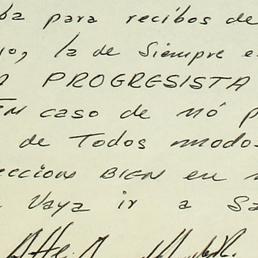 ba para recibos de
o, la de siempre e
PROGRESISTA
EN caso de nó p
de Todos modos
eccions BIEN en
Vaya ir a Sa